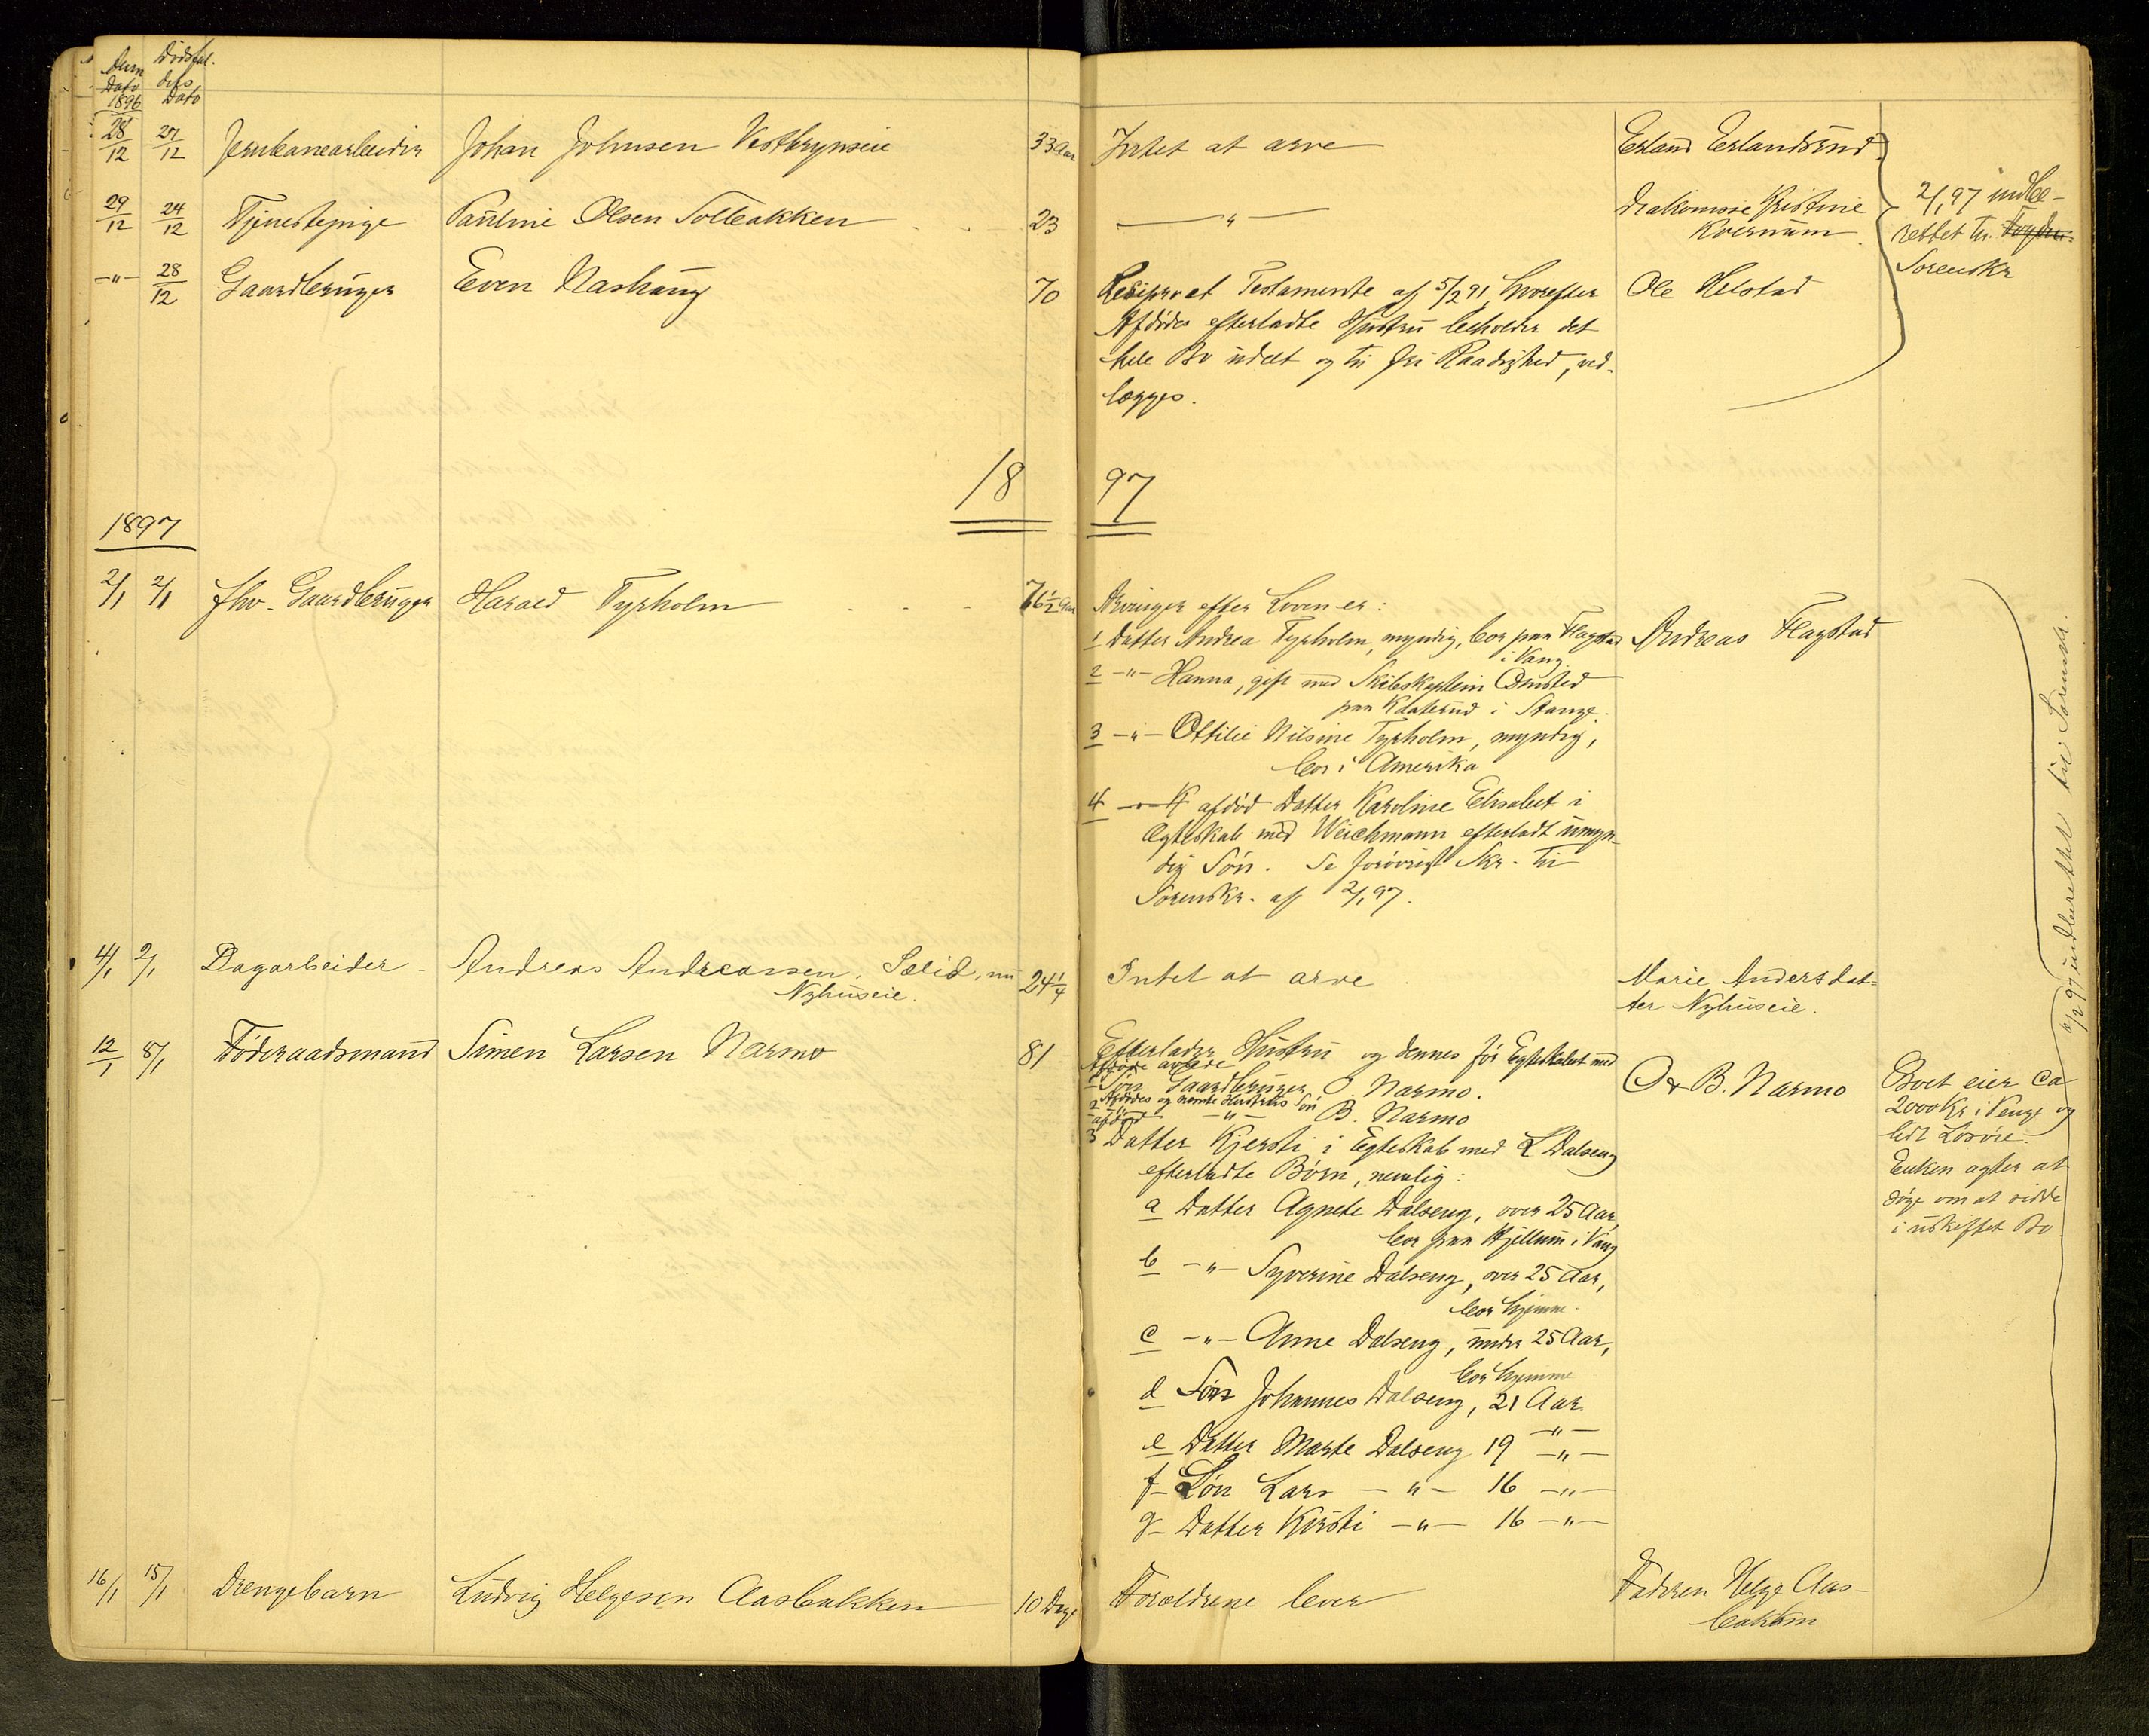 Anm Dato 1896
Dødsfal. dets Dato
28/12 27/12 Jernbanearbeider Johan Johnsen Vestbynseie 33 Aar Intet at arve Erland Erlandsrud
29/12 24/12 Tjenestepige Pauline Olsen Solbakken 23 — " — Diakonisse Kristine
Kvernum
— " — 28/12 Gaardbruger Even Nashaug 70 Resiprokt Testamente af 5/2 91, hvorefter Ole Helstad
Afdødes efterladte Hustru beholder det
hele Bo udelt og til fri Raadighed, ved-
lægges.
2/1 97 indbe-
rettet til
Sorenskr
18 97
1897
2/1 2/1 fhv. Gaardbruger Harald Tyrholm 76 1/2 Aar Arvinger efter Loven er:
1 Datter Andrea Tyrholm, myndig, bor paa Flagstad Andreas Flagstad
i Vang.
2 — " — Hanna, gift med Skibskaptein
paa i Stange.
3 — " — Ottilie Nilsine Tyrholm, myndig,
bor i Amerika
4 afdød Datter Karoline Elisabet i
Ægteskab med Weichmann efterladt umyn-
dig Søn. Se forøvrigt Skr. til
Sorenskr. af 2/1 97.
4/1 2/1 Dagarbeider Andreas Andreassen, Sælid, nu 24 1/4 Intet at arve Marie Andersdat-
Nyhuseie. ter Nyhuseie.
12/1 8/1 Føderaadsmand Simen Larsen Narmo 81 Efterlader Hustru og dennes før Egteskabet med
Afdøde avlede
1 Søn Gaardbruger O. Narmo. O & B. Narmo
2 Afdødes og nævnte Hustrus Søn
— " — B. Narmo
3 afdød Datter Kjersti i Egteskab med L Dalseng
efterladte Børn, nemlig:
a Datter Agnete Dalseng, over 25 Aar,
bor paa Hjellum i Vang
b — " — Syverine Dalseng, over 25 Aar,
bor hjemme.
c — " — Anne Dalseng, under 25 Aar,
bor hjemme
d Søn Johannes Dalseng, 21 Aar
— " —
e Datter Marte Dalseng 19 — " —
f Søn Lars — " — 16 — " —
g Datter Kirsti — " — 16 — " —
Boet eier ca
2000 Kr i Penge og
lidt Løsøre.
Enken agter at
søge om at sidde
i uskiftet Bo
16/1 15/1 Drengebarn Ludvig Helgesen Aasbakken 10 Dage Forældrene lever Faderen Helge Aas-
bakken
2 97 indberettet til Sorenskr.